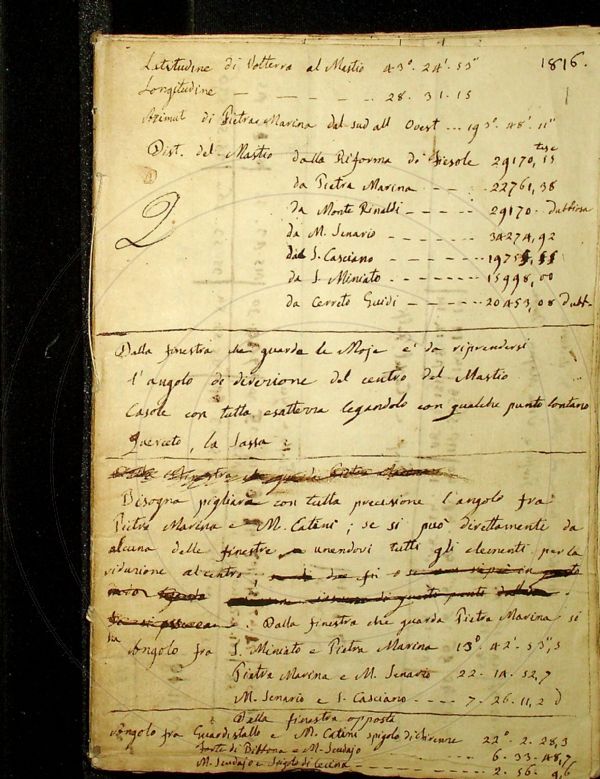 1816.
Latitudine di Volterra al Mastio 43°. 24'. 53"
Longitudine — — — — .. 28. 31. 15
Azimut di Pietra Marina dal sud all Ovest ... 193°. 48'. 11"
tese
Dist. del Mastio dalla Riforma di Fiesole 29170, 15
da Pietra Marina — — — 22761, 38
da Monte Rinaldi — — — — 29170. dubbiosa
da M. Senario — — — — — 34274, 92
da S. Casciano — — — —
da S. Miniato — — — — 15998, 00
da Cerreto Guidi — — — 20453, 08 Dubb.
Dalla finestra che guarda le Moje e' da riprendersi
l'angolo di direzione del centro del Mastio
Casole con tutta esattezza legandolo con qualche punto lontano
Querceto, la Sassa
Bisogna pigliare con tutta precisione l'angolo fra
Pietra Marina e M. Catini; se si può direttamente da
alcuna delle finestre unendovi tutti gli elementi per la
riduzione al centro
Dalla finestra che guarda Pietra Marina si
ha Angolo fra S. Miniato e Pietra Marina 13°. 42'. 53",5
Pietra Marina e M. Senario 22. 14. 52,7
M. Senario e S. Casciano — — — 7. 26. 11,2
Dalla finestra opposta
Angolo fra Guardistallo e M. Catini spigolo di 22°. 2. 28,3
Forte di Bibbona e M. Scudajo — — — 6. 33. 48,7
M. Scudajo e di Cecina — — — 2. 56. 9,6